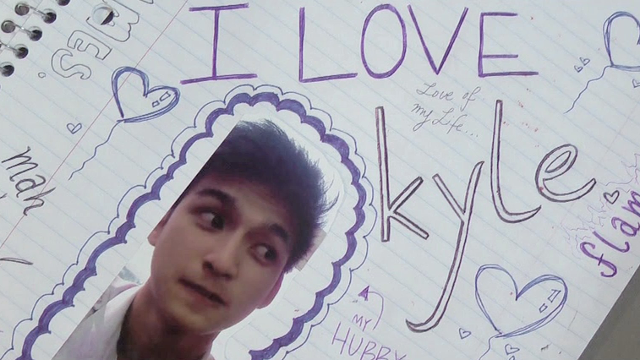 I LOVE
kyle
Love of
my Life...
MY
HUBBY
mah
flam